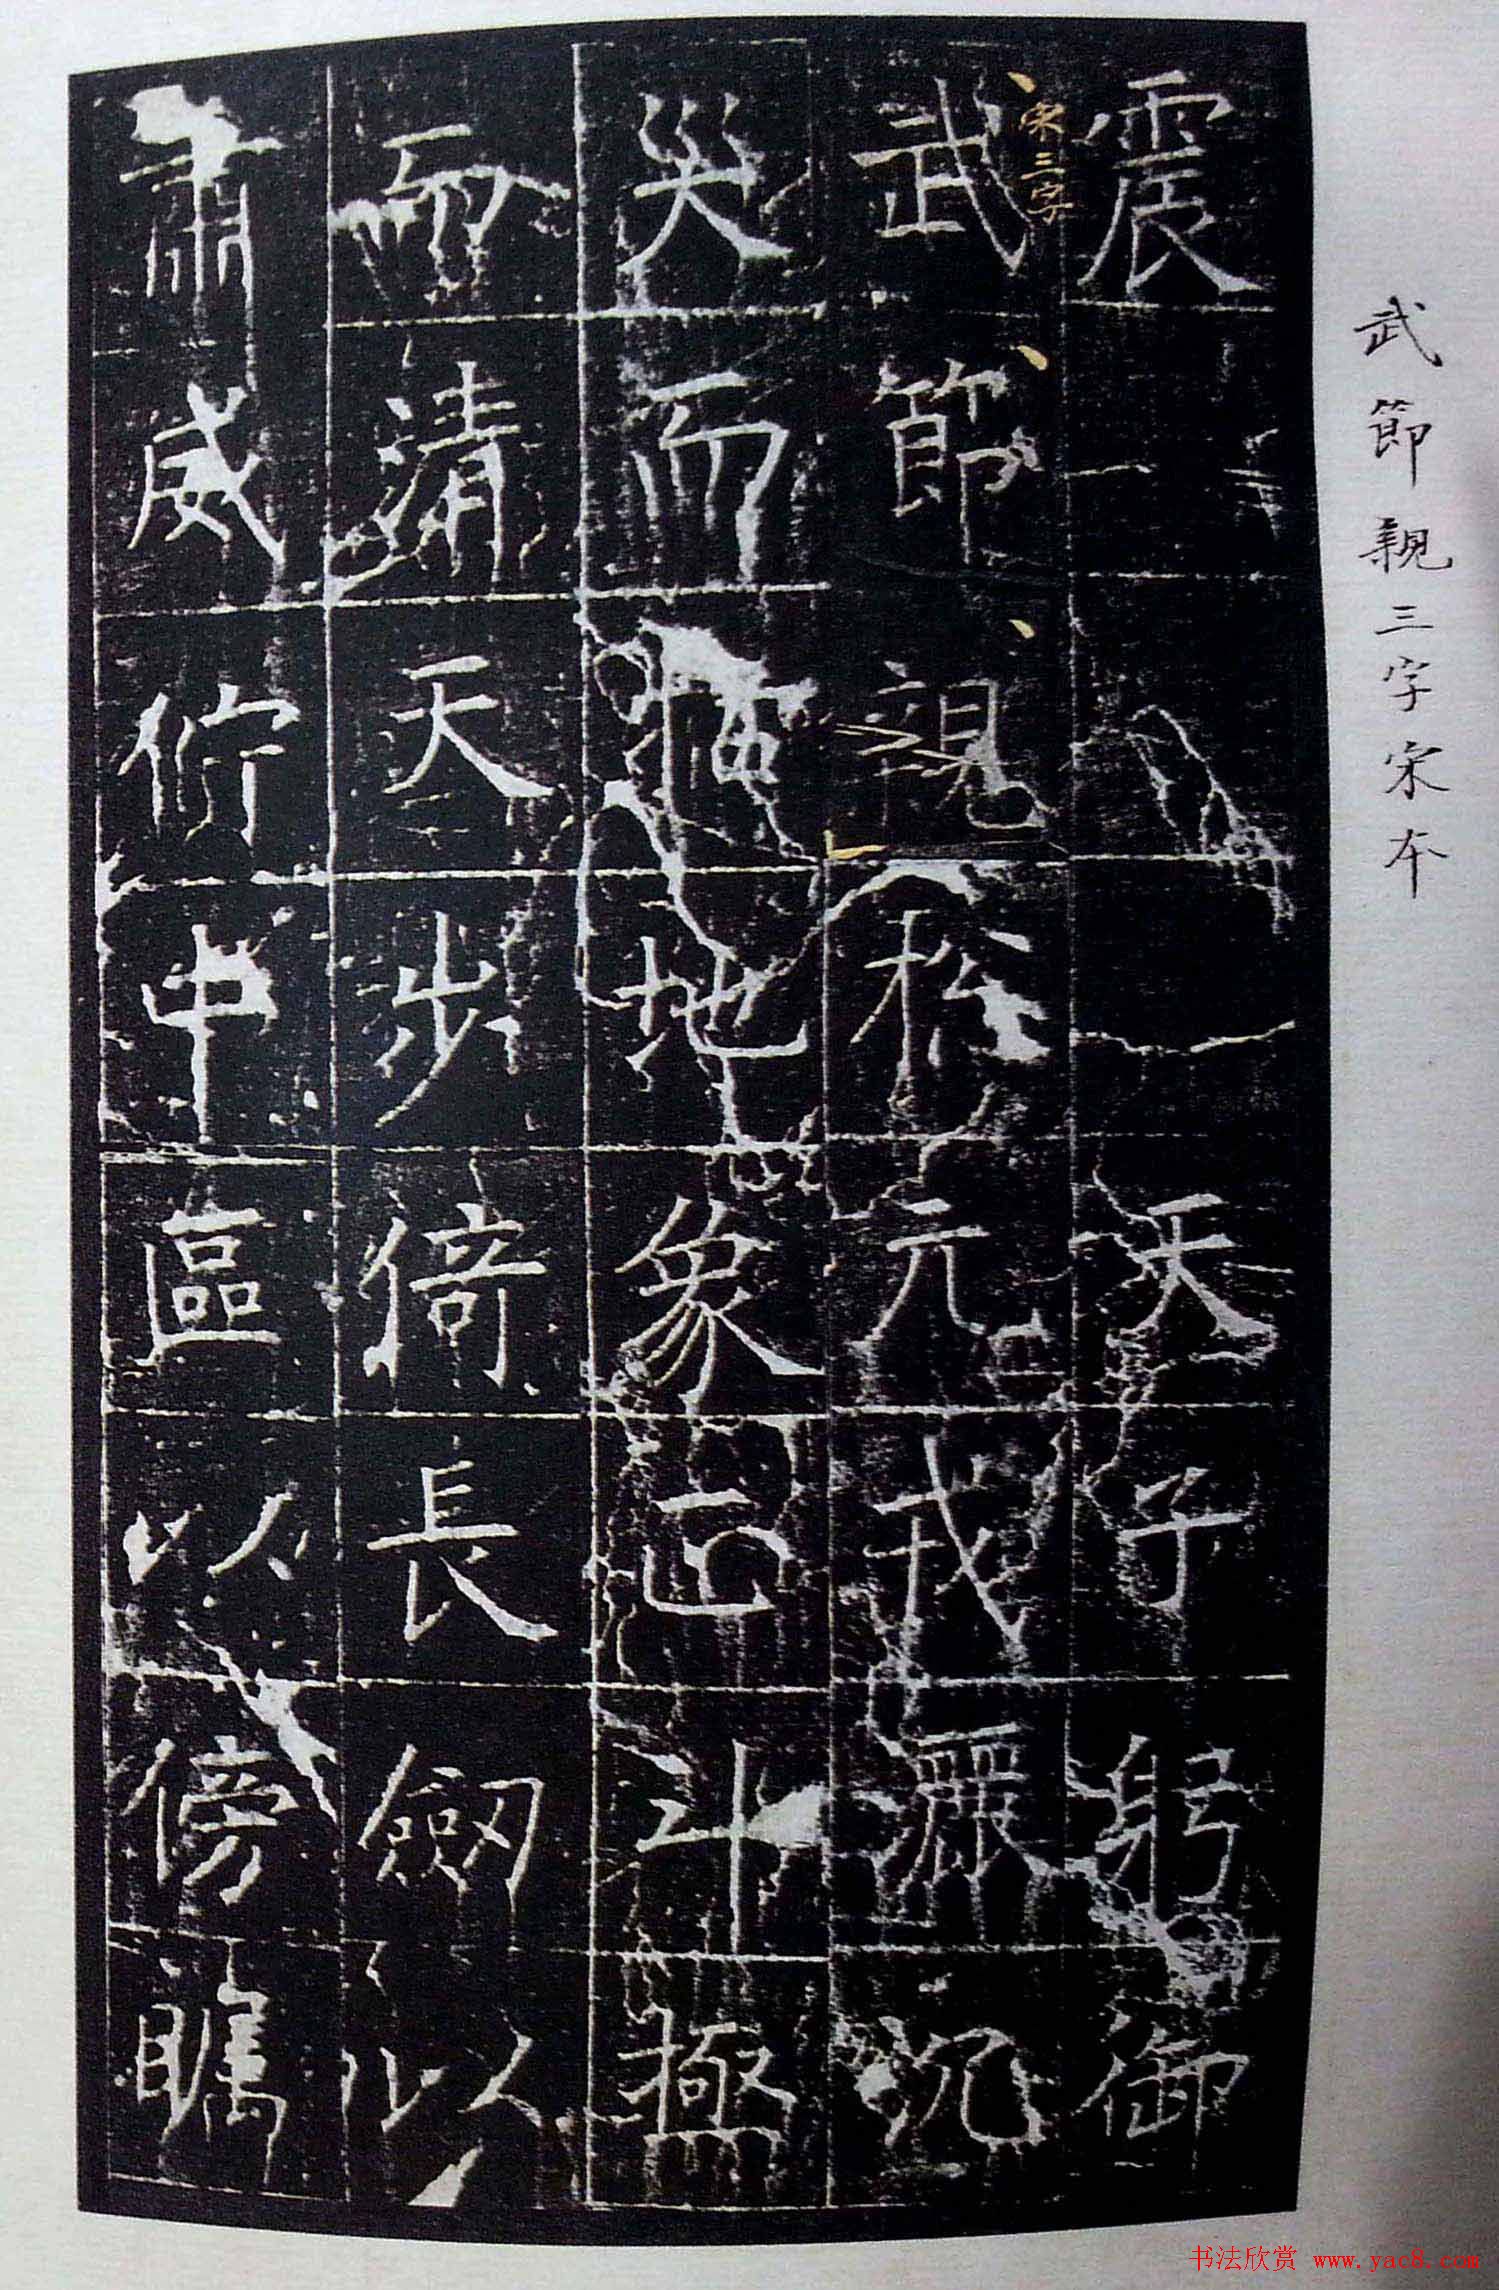 武節親三字宋本
震天子躬御
宋三字
武節親元戎灑沉
災而地象正斗極
而清天步倚長劔以
肅威佇中區以傍矚
书法欣赏 www.yac8.com